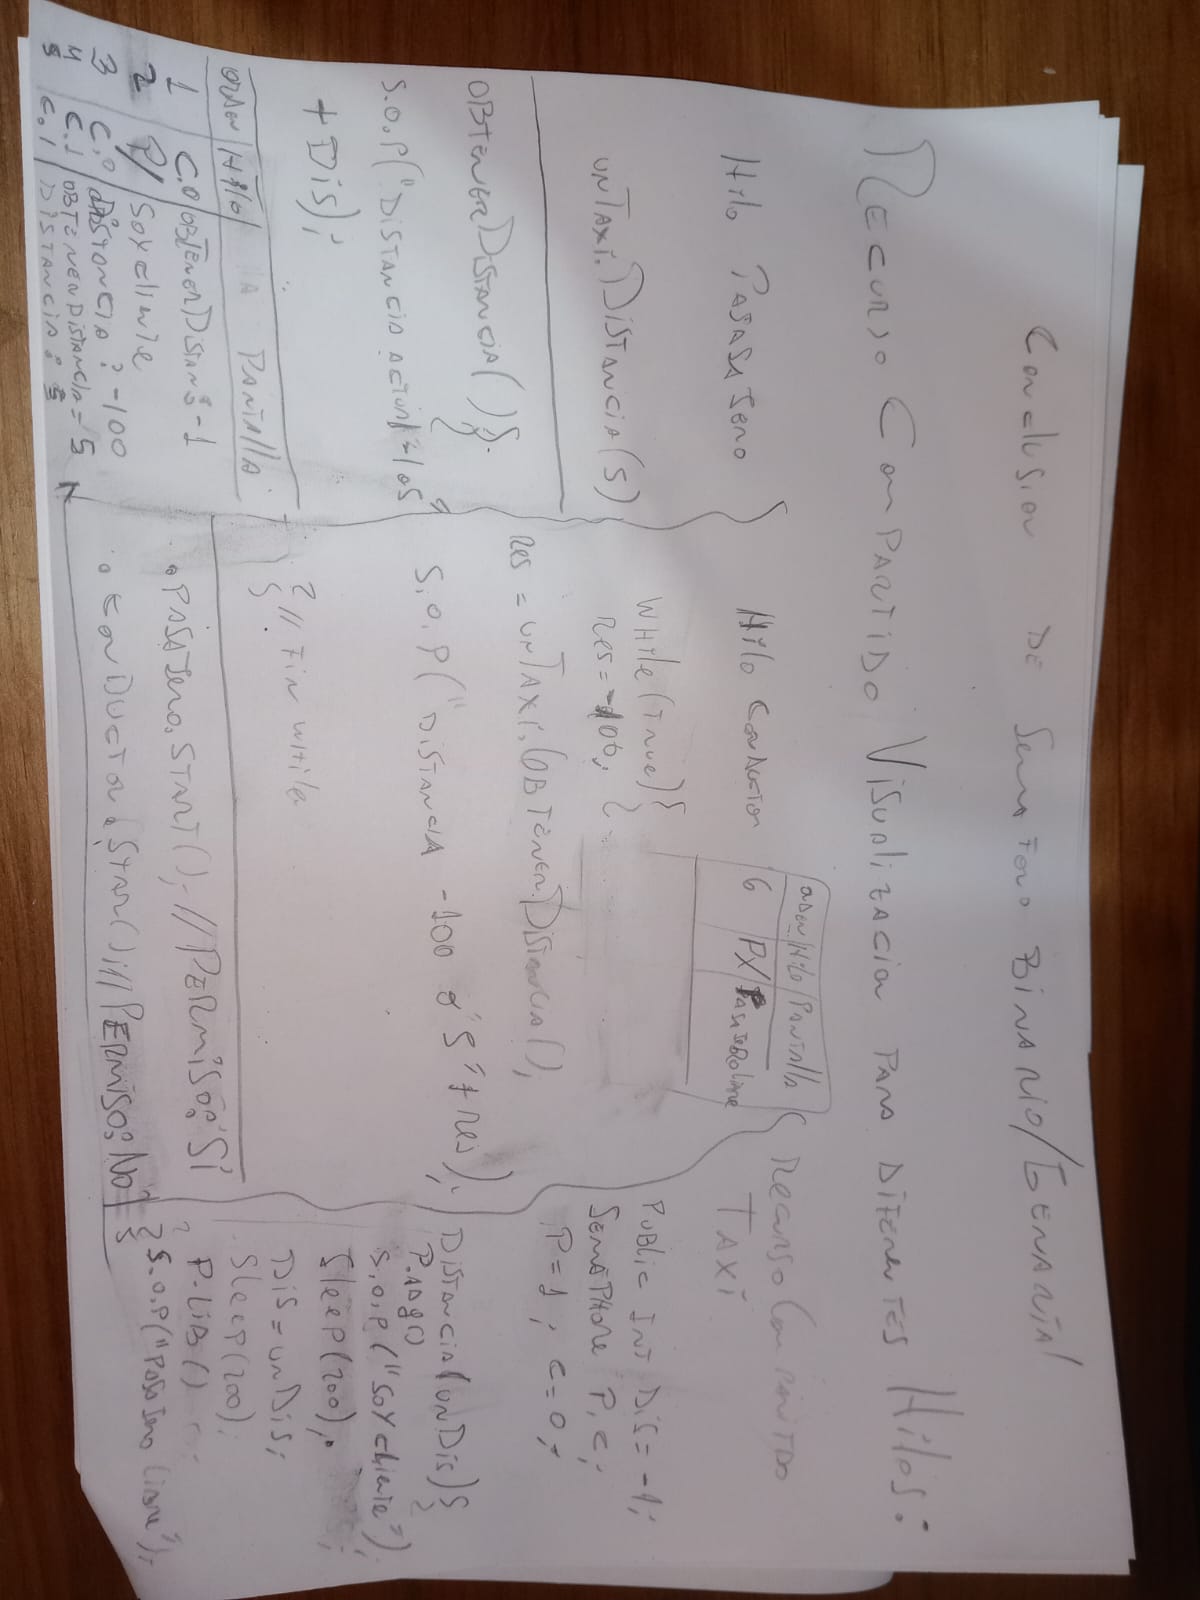 Conclusion DE Semaforo BINARIO/GENARIA!
Recurso Compartido Visualizacion Para Diferentes Hilos:
Hilo PASAJERO
unTaxi.Distancia(5)
OBTENERDistancia(){
S.O.P("DISTANCIA ACTUAL
+ Dis);
orden/Hilo/ PANTALLA
1 C.0 OBTENER Distan: -1
2 P/ SOY cliente
3 C.0 distancia? -100
4 C.1 OBTENER DISTANCIA = 5
5 C.1 DISTANCIA: 5
Hilo Conductor
While(True){
Res = -100;
Res = unTaxi.OBTENERDistancia();
S.O.P("DISTANCIA -100 o 5"+Res);
} // FIN While
orden/Hilo/Pantalla
6 PX/
• PASAJERO.START(); // PERMISO: SI
• conDuctor.Star(); // PERMISO: No
Recurso Compartido
TAXI
PUBLIC INT DIS = -1;
SEMAPHORE P, C;
P=1; C=0;
Distancia(unDis){
P.ADQ()
S.O.P("SOY cliente");
Sleep(200);
Dis = unDis;
Sleep(200);
P.LIB()
S.O.P("PASAJERO Libre");